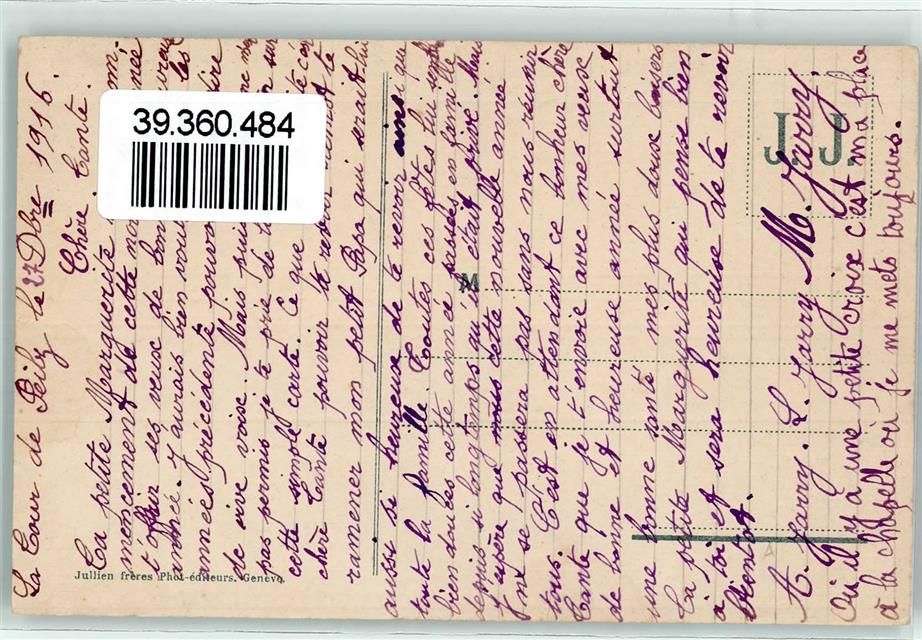 La Tour de Peilz le 27 Dbre 1916.
Chère Tante.
Ta petite Marguerite
mmencement de cette no
et offrir ses vœux de bon
année. J'aurais bien voulu les
années précédente pouvo
de vive voix. Mais puis
pas permis je te prie de
cette simple carte. Ce que
chère Tante pouvoir te revoir
ramener mon petit Papa qui serait lui
aussi si heureux de te revoir ainsi que
toute la famille. Toutes ces fêtes lui
bien douces cette année passées en famille
depuis si longtemps qu'il en était privé. Mais
j'espère que cette nouvelle année
ne se passera pas sans nous réunir
tous. C'est en attendant ce bonheur chère
Tante que je t'envoie avec mes vœux
de bonne et heureuse année surtout
une bonne santé mes plus doux baisers
Ta petite Marguerite qui pense bien
à toi et sera heureuse de te revoir
Bientôt.
A. Jarry. L. Jarry M. Jarry.
Où il y a une petite croix c'est ma place
à la chapelle où je me mets toujours.
39.360.484
M
J. J.
Jullien frères Phot-éditeurs. Genève.